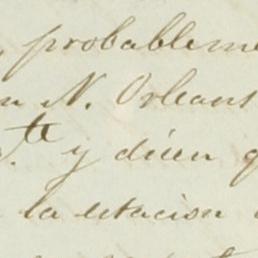 , probableme
n N. Orleans
te y dicen q
la estacion